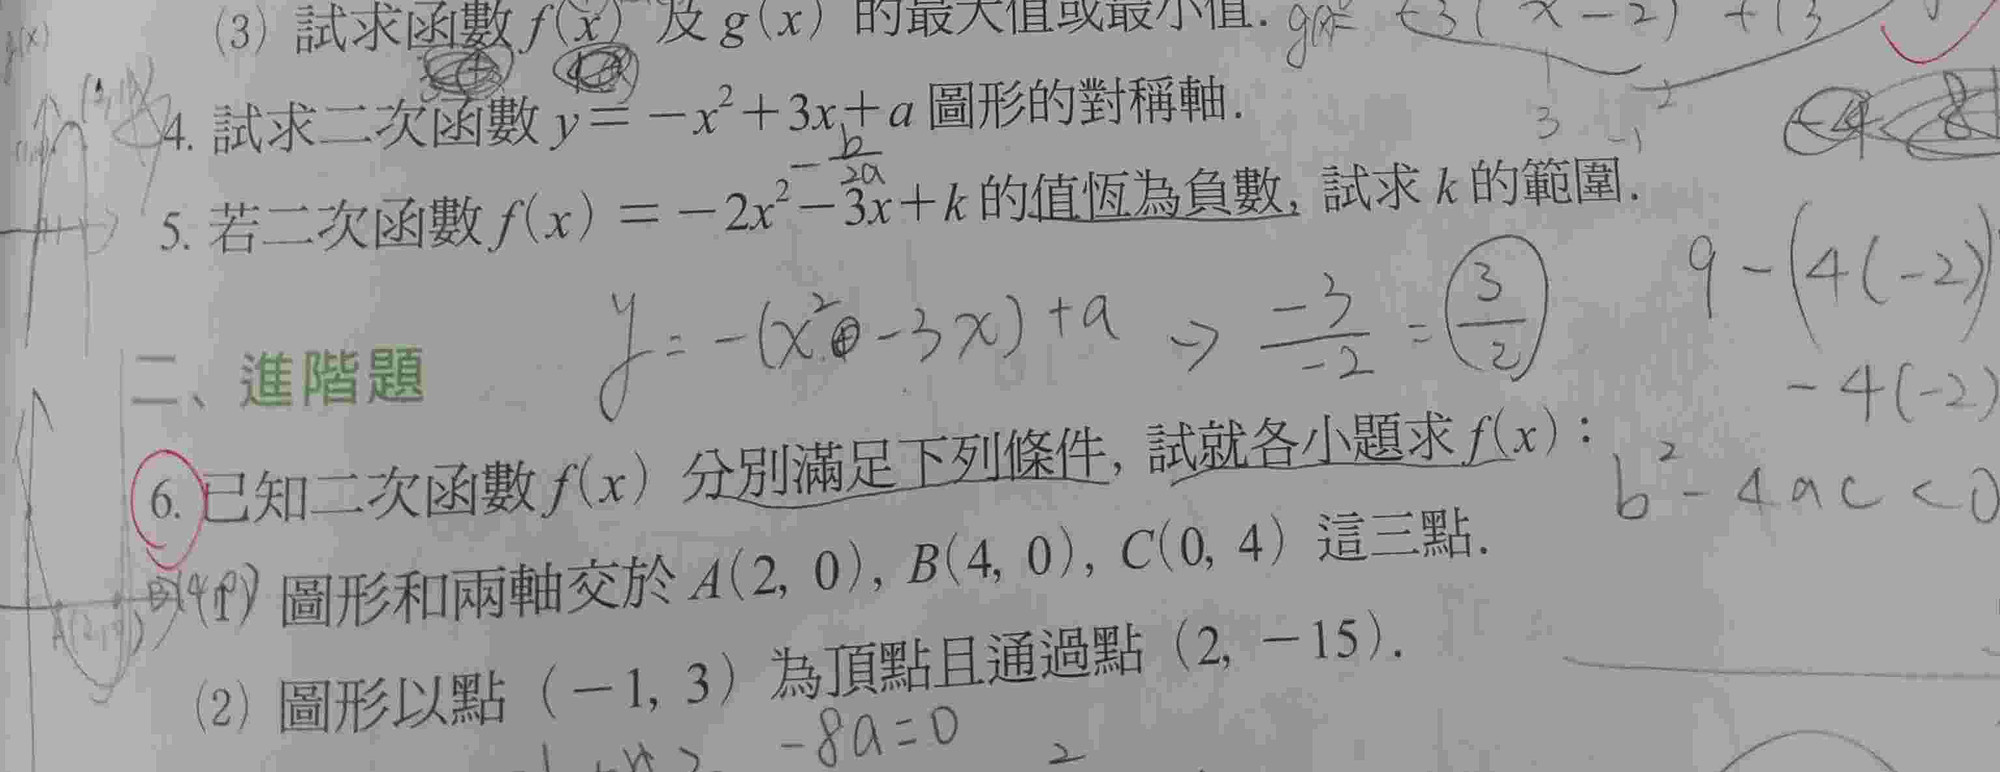 (3) 試求函數 f(x) 及 g(x) 的最大值或最小值. g(x)= -3(x-2) +13
4. 試求二次函數 y = -x² + 3x + a 圖形的對稱軸.
-b/2a
5. 若二次函數 f(x) = -2x² - 3x + k 的值恆為負數, 試求 k 的範圍.
9-(4(-2))
y = -(x² - 3x) + a → -3/-2 = 3/2
-4(-2)
二、進階題
b² - 4ac < 0
6. 已知二次函數 f(x) 分別滿足下列條件, 試就各小題求 f(x)：
(1) 圖形和兩軸交於 A(2, 0), B(4, 0), C(0, 4) 這三點.
(2) 圖形以點 (-1, 3) 為頂點且通過點 (2, -15).
-8a=0